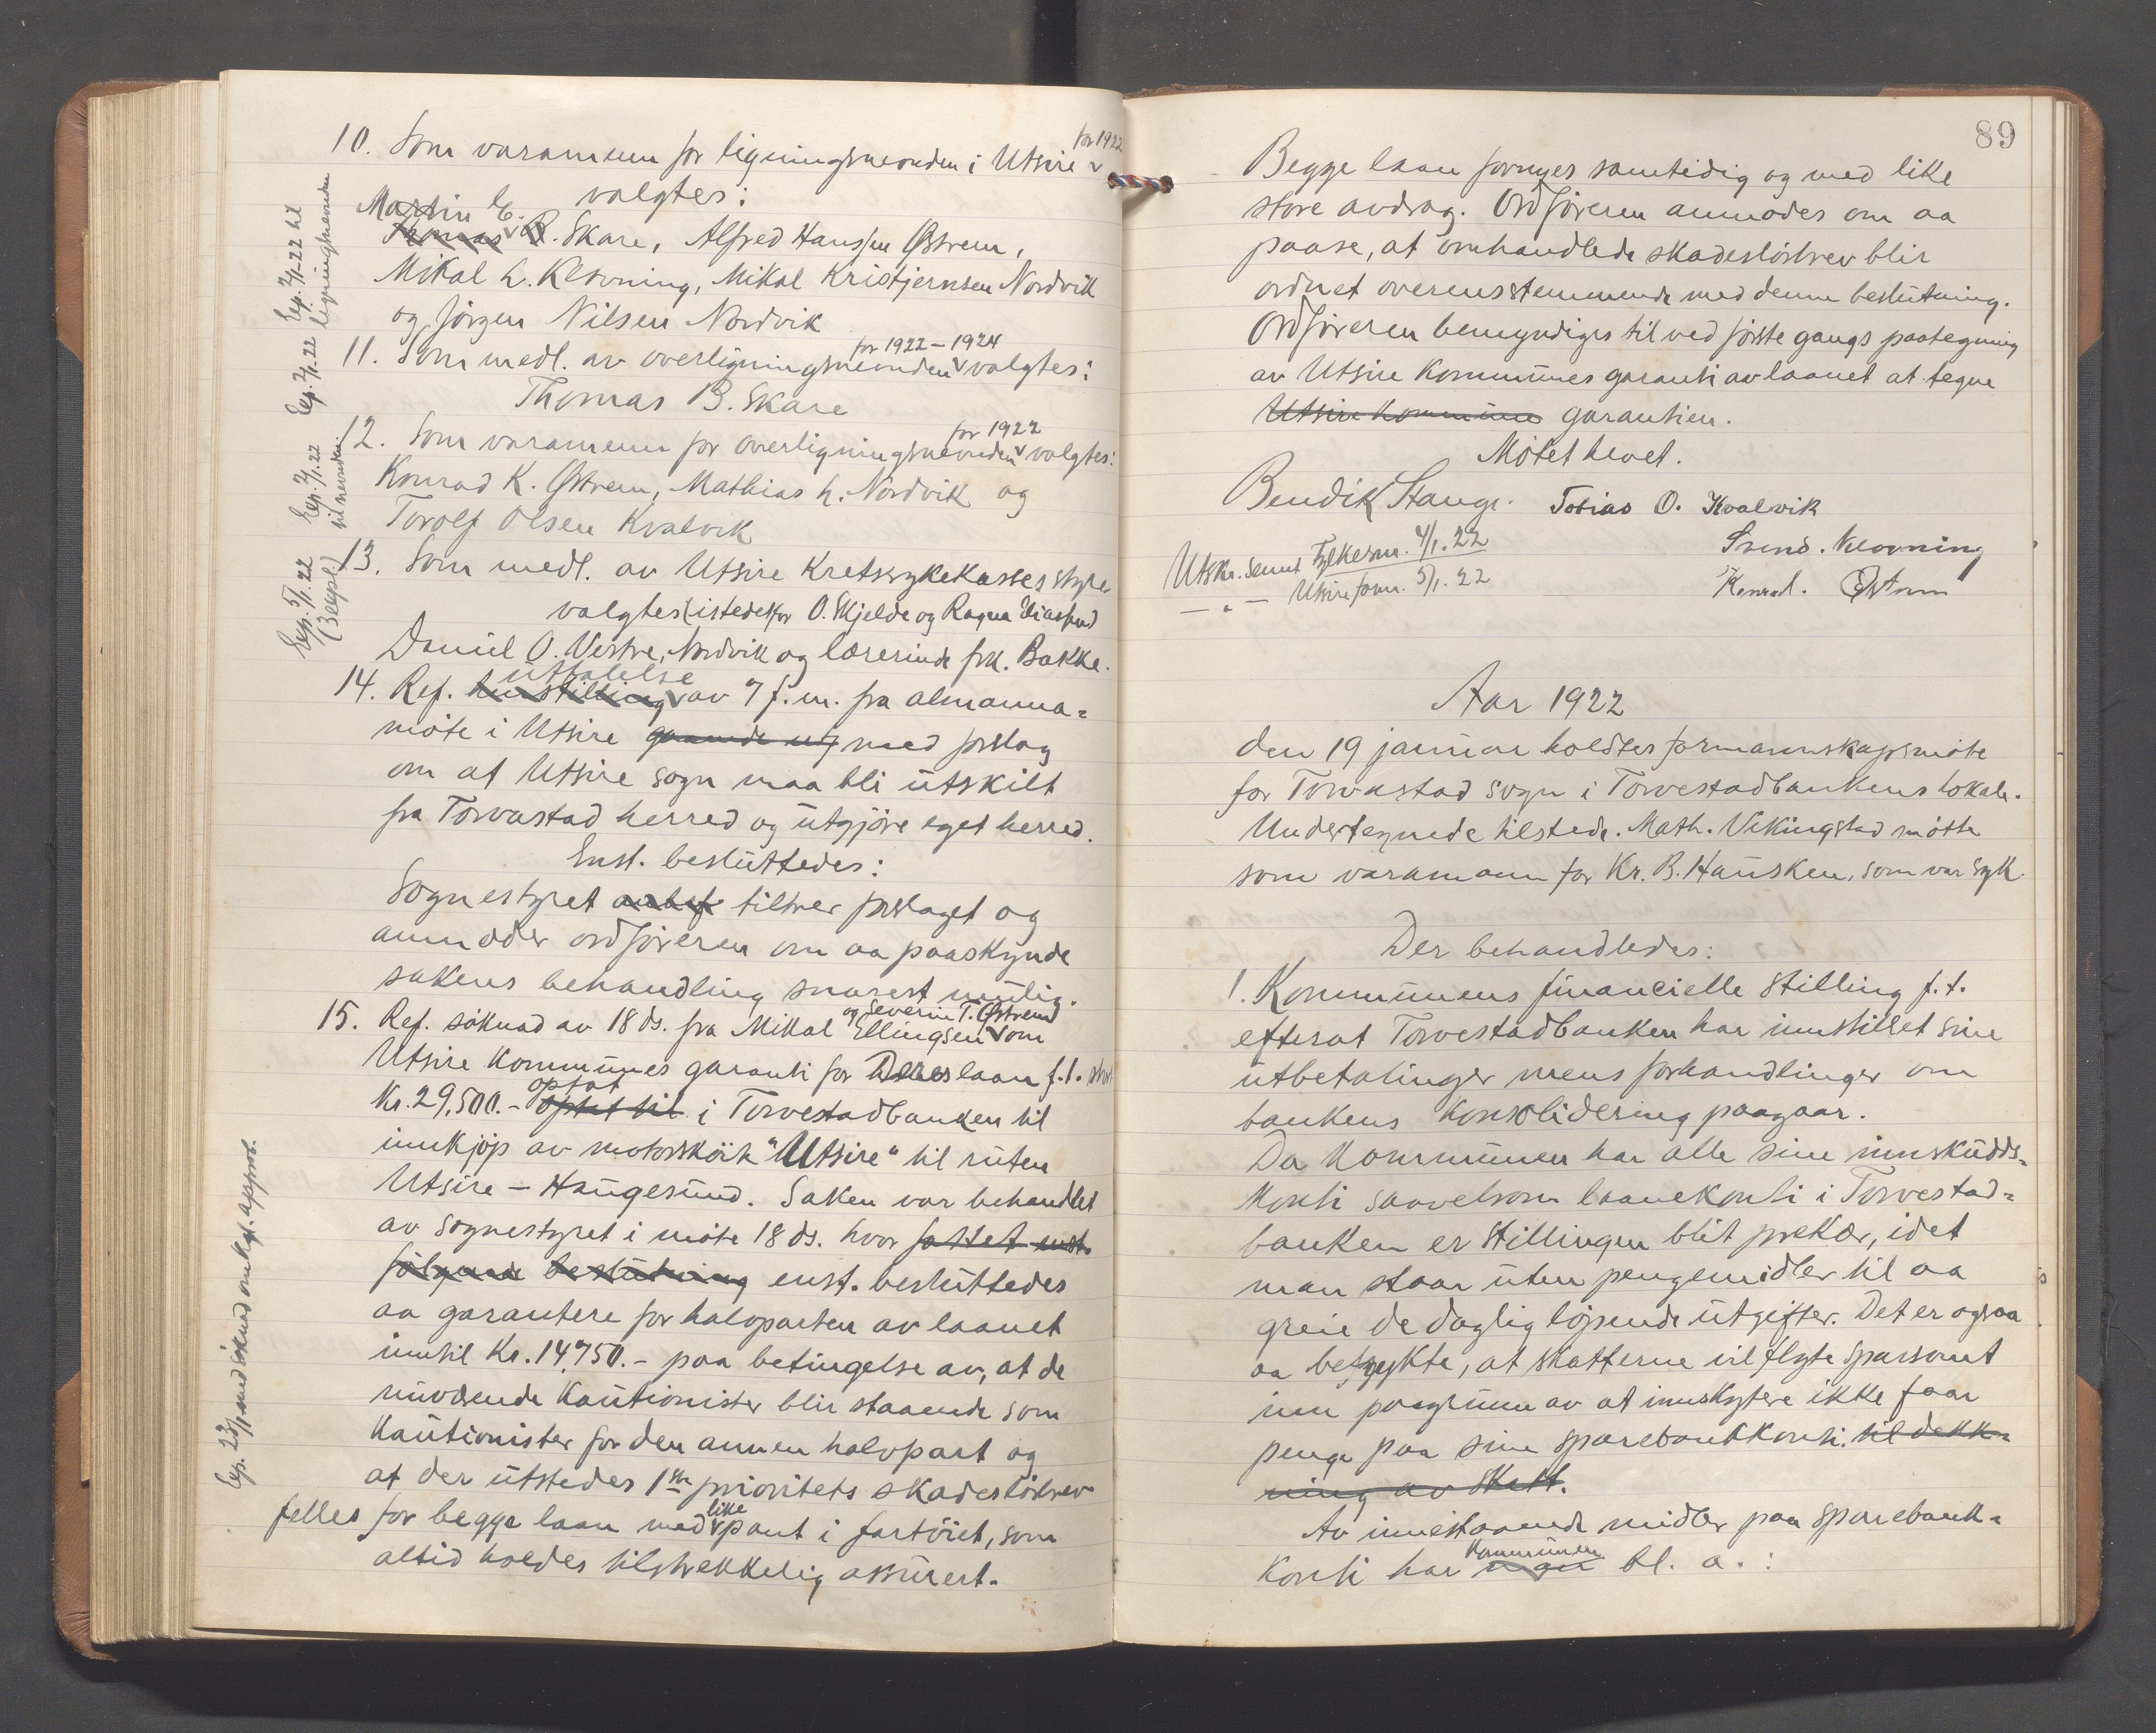 10. Som varamenn for ligningsnevnden i Utsire for 1922
valgtes:
Martin E.
Tomas B. Skare, Alfred Hanssen Østrem,
Mikal L. Klovning, Mikal Kristjernsen Nordvik
og Jörgen Nilsen Nordvik
11. Som medl. av overligningsnevnden for 1922-1924 valgtes:
Thomas B. Skare
12. Som varamenn for overligningsnevnden for 1922 valgtes:
Konrad K. Østrem, Mathias h. Nordvik og
Torolf Olsen Kvalvik
13. Som medl. av Utsire Kretssykekasses styre
valgtes (istedetfor O. Skjelde og Ragna
Daniel O. Vestre, Nordvik og lærerinde frk. Bakke.
14. Ref. innstilling uttalelse av 7 f.m. fra almanna-
möte i Utsire med forslag
om at Utsire sogn maa bli utskilt
fra Torvastad herred og utgjöre eget herred.
Enst. besluttedes:
Sognestyret anbef. tiltrer forslaget og
anmoder ordföreren om aa paaskynde
sakens behandling snarest mulig.
15. Ref. söknad av 18 ds. fra Mikal Ellingsen og Severin T. Østrem om
Utsire kommunes garanti for Deres laan f.t. stort
Kr. 29,500.- optat til optat i Torvestadbanken til
innkjöp av motorsköit "Utsire" til ruten
Utsire - Haugesund. Saken var behandlet
av sognestyret i möte 18 ds. hvor fattet enst.
fölgende beslutning enst. besluttedes
aa garantere for halvparten av laanet
inntil Kr. 14,750.- paa betingelse av, at de
nuværende kautionister blir staaende som
kautionister for den annen halvpart og
at der utstedes 1ste prioritets skadeslösbrev
felles for begge laan med like pant i fartöiet, som
altid holdes tilstrekkelig assurert.
Exp. 2/1-22 til
ligningsnevnden
Exp. 2/1.22
Exp. 2/1.22
til nevnden
Exp. 5/1.22
(3 expl)
Exp. 23/1 med söknad om kgl. approb.
89
Begge laan fornyes samtidig og med like
store avdrag. Ordföreren anmodes om aa
paase, at omhandlede skadeslösbrev blir
ordnet overensstemmende med denne beslutning.
Ordföreren bemyndiges til ved förste gangs paategning
av Utsire kommunes garanti av laanet at tegne
Utsire kommune garantien.
Mötet hevet.
Bendik Stange. Tobias O. Kvalvik
Svend. Klovning
Konrad. Østrem
Utskr. sennt Fylkesm. 4/1.22
— " — Utsire form. 5/1.22
Aar 1922
den 19 januar holdtes formannskapsmöte
for Torvastad sogn i Torvestadbankens lokale.
Undertegnede tilstede. Math. Vikingstad mötte
som varamann for Kr. B. Hausken, som var syk.
Der behandledes:
1. Kommunens financielle stilling f.t.
efterat Torvestadbanken har innstillet sine
utbetalinger mens forhandlinger om
bankens konsolidering paagaar.
Da kommunen har alle sine innskudds-
konti saavelsom laanekonti i Torvestad-
banken er stillingen blit prekær, idet
man staar uten pengemidler til aa
greie de daglig löpende utgifter. Det er ogsaa
aa befrykte, at skatterne vil flyte sparsomt
inn paagrunn av at innskytere ikke faar
penge paa sine sparebankkonti. til dekk-
ning av skatt.
Av innestaaende midler paa sparebank-
konti har kommunen bl. a. :